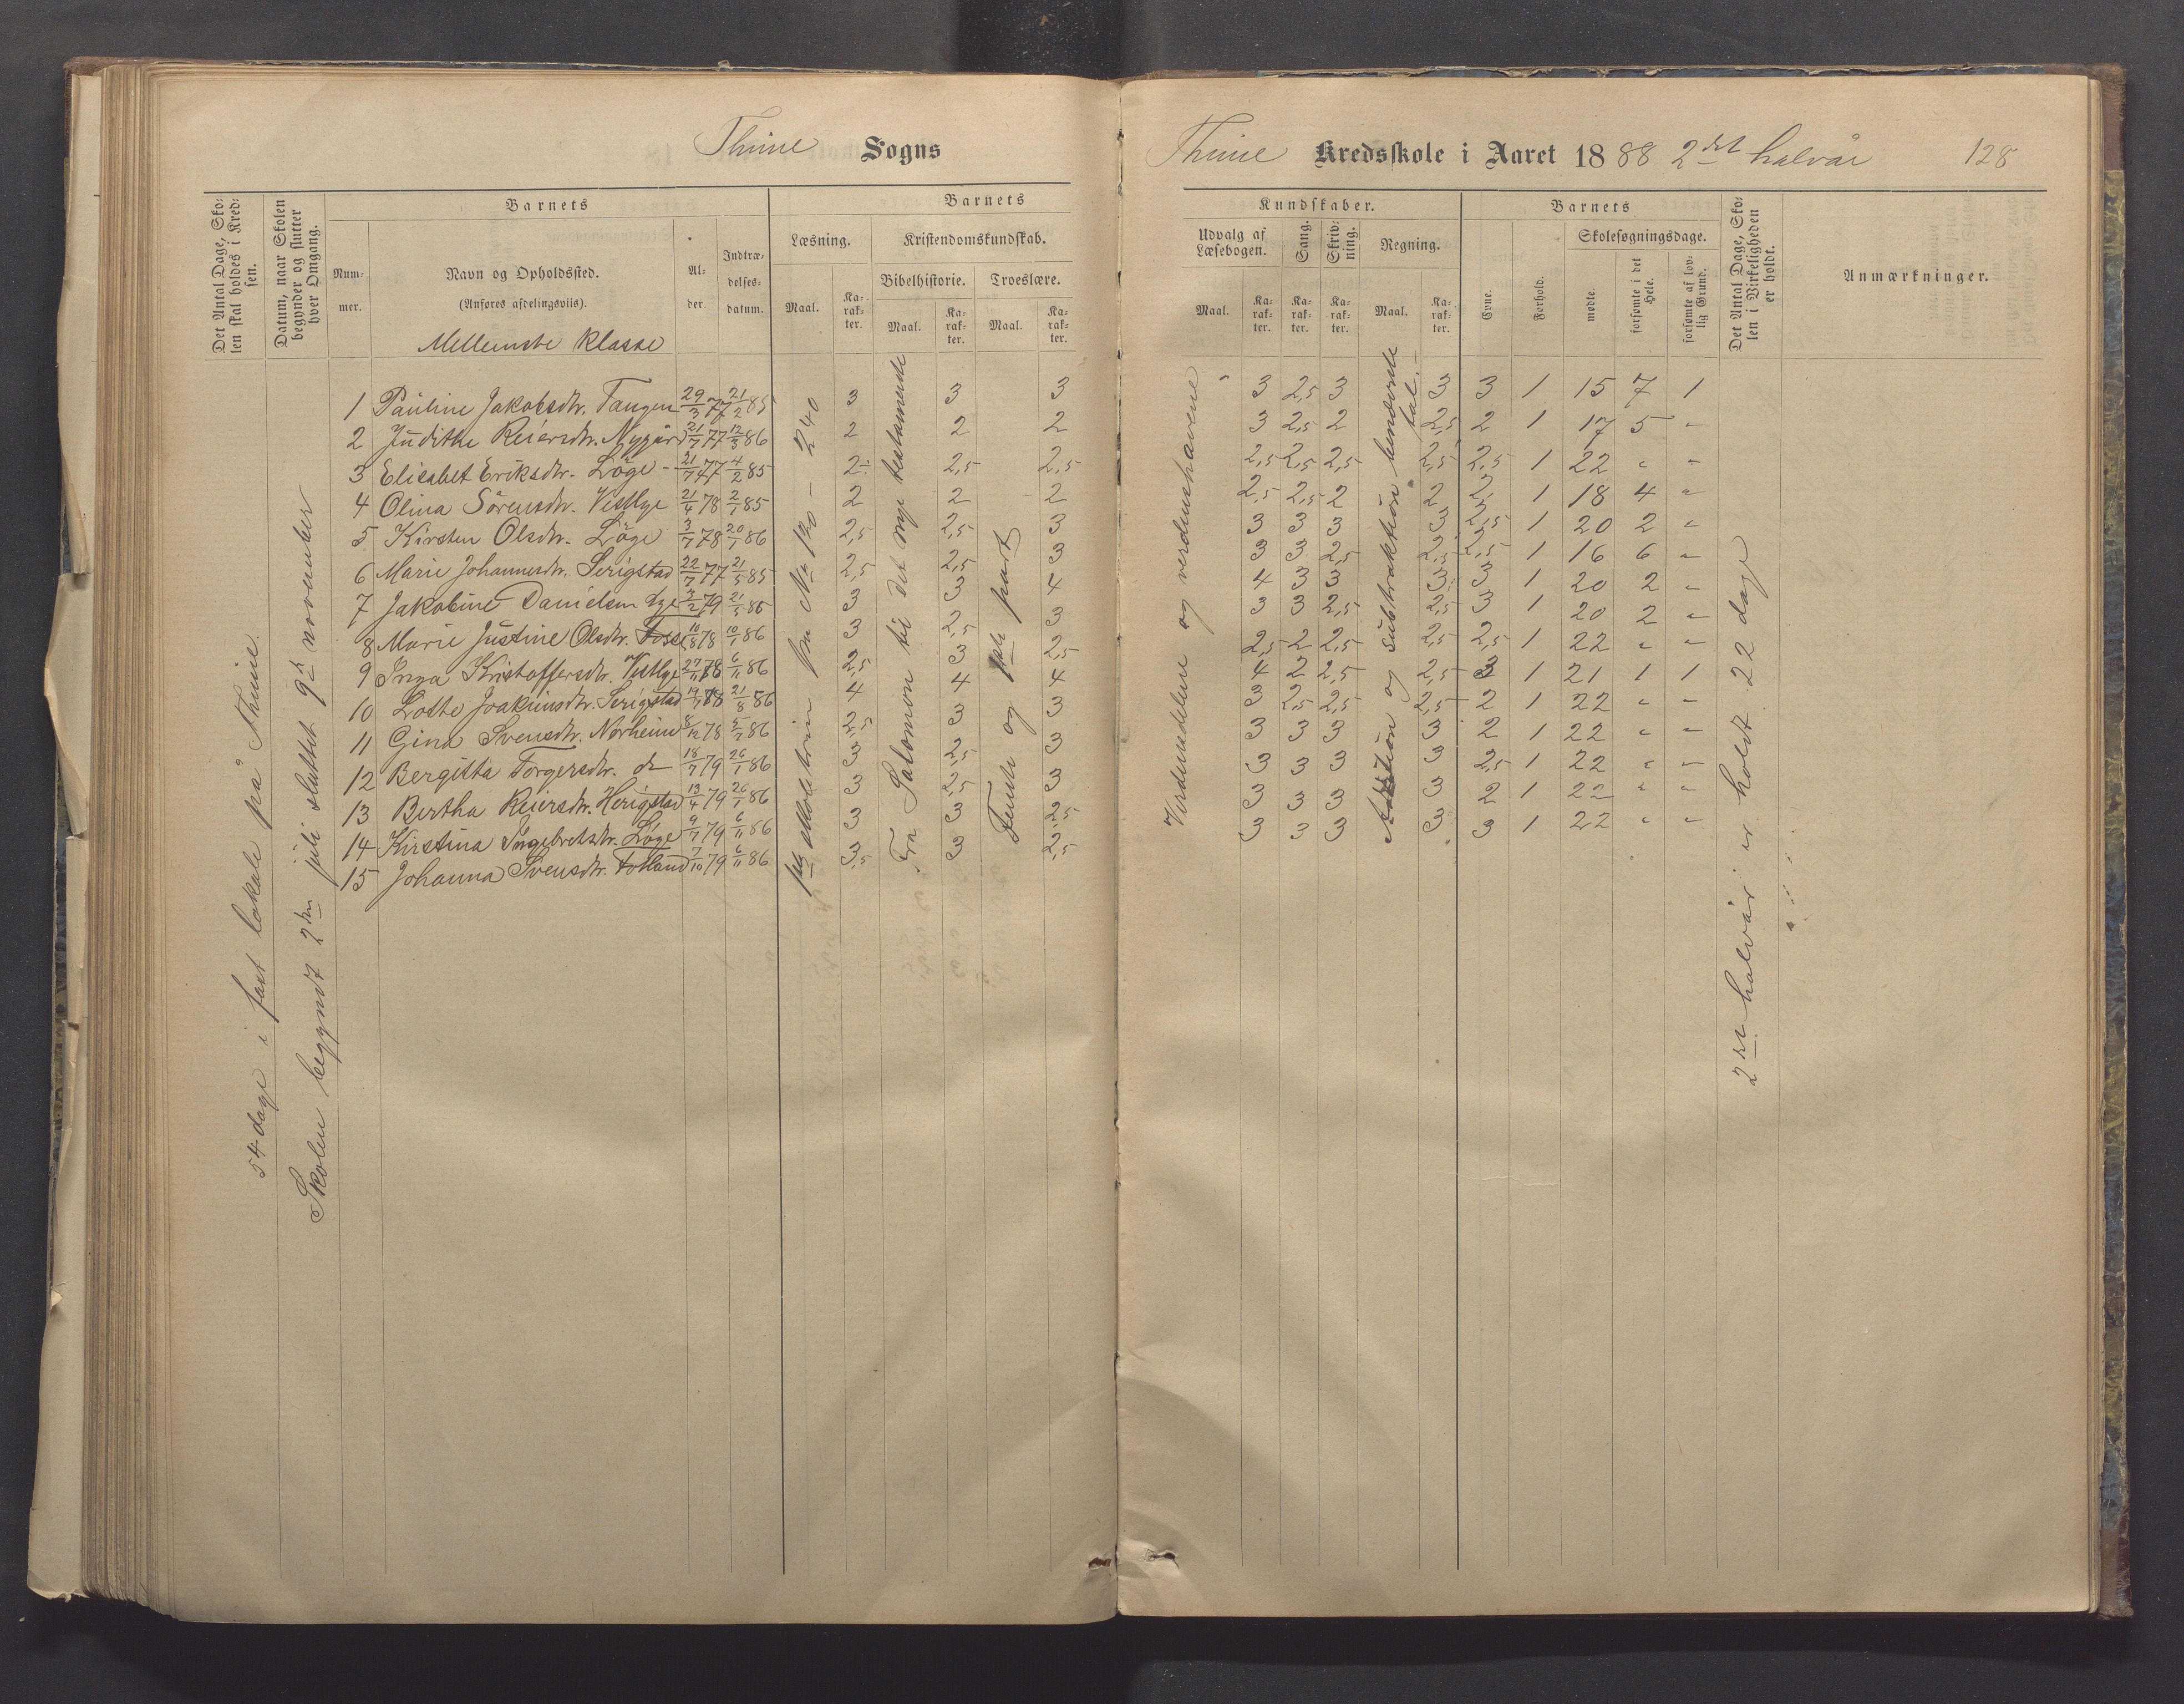 Thime Sogns
Thime Kredsskole i Aaret 1888 2det halvår 128
Det Antal Dage, Skolen skal holdes i Kredsen.
Datum, naar Skolen begynder og slutter hver Omgang.
Barnets
Nummer.
Navn og Opholdssted.
(Anføres afdelingsviis).
Alder.
Indtrædelsesdatum.
Barnets
Læsning.
Kristendomskundskab.
Bibelhistorie. Troeslære.
Maal. Karakter. Maal. Karakter. Maal. Karakter.
Kundskaber.
Udvalg af Læsebogen. Sang. Skrivning. Regning.
Maal. Karakter. Karakter. Karakter. Maal. Karakter.
Barnets
Evne. Forhold.
Skolesøgningsdage.
mødte. forsømte i det Hele. forsømte af lovlig Grund.
Det Antal Dage, Skolen i Virkeligheden er holdt.
Anmærkninger.
Mellemste klasse
54 dage i fast lokale på Thime.
Skolen begyndt 2den juli sluttet 9de november
1 Pauline Jakobsdtr. Tangen 29/3 77 21/2 85 3 3 3 3 2,5 3 3 3 1 15 7 1
2 Judithe Reiersdtr. Nygård 21/7 77 12/3 86 2 2 2 3 2,5 2 2,5 2 1 17 5 "
3 Elisabet Eriksdtr. Löge 21/7 77 4/2 85 2 2,5 2,5 2,5 2,5 2,5 2,5 2,5 1 22 " "
4 Olina Sörensdtr. Vestlye 21/4 78 2/1 85 2 2 2 2,5 2,5 2 2 2 1 18 4 "
5 Kirsten Olsdtr. Löge 3/7 78 20/1 86 2,5 2,5 3 3 3 3 3 2,5 1 20 2 "
6 Marie Johannesdtr. Serigstad 22/7 77 21/5 85 2,5 2,5 3 3 3 2,5 2,5 2,5 1 16 6 "
7 Jakobine Danielsen Lye 3/2 79 21/5 86 3 3 4 4 3 3 3 3 1 20 2 "
8 Marie Justine Olsdtr. Fosse 10/8 78 10/1 86 3 2,5 3 3 3 2,5 2,5 3 1 20 2 "
9 Inga Kristoffersdtr. Vestlye 27/11 78 6/11 86 2,5 3 2,5 2,5 2 2,5 2,5 2,5 1 22 " "
10 Lotte Joakimsdtr. Serigstad 19/7 78 21/8 86 4 4 4 4 2 2,5 2,5 3 1 21 1 1
11 Gina Svensdtr. Norheim 8/12 78 5/7 86 2,5 3 3 3 2,5 2,5 2,5 2 1 22 " "
12 Bergitta Torgersdtr. do 18/7 79 26/1 86 3 2,5 3 3 3 3 3 2 1 22 " "
13 Bertha Reiersdtr. Herigstad 13/4 79 26/1 86 3 2,5 3 3 3 3 3 2,5 1 22 " "
14 Kirstina Ingebretsdtr. Löge 9/7 79 6/11 86 3 3 2,5 3 3 3 3 2 1 22 " "
15 Johanna Svensdtr. Fotland 7/10 79 6/11 86 3,5 3 2,5 3 3 3 3 3 1 22 " "
fra No 120 - 240
Fra Salomon til det nye testamente
Femte og part
Verdensdelene og verdenshavene
Addition og subtraktion benævnte tal.
2det halvår er holdt 22 dage